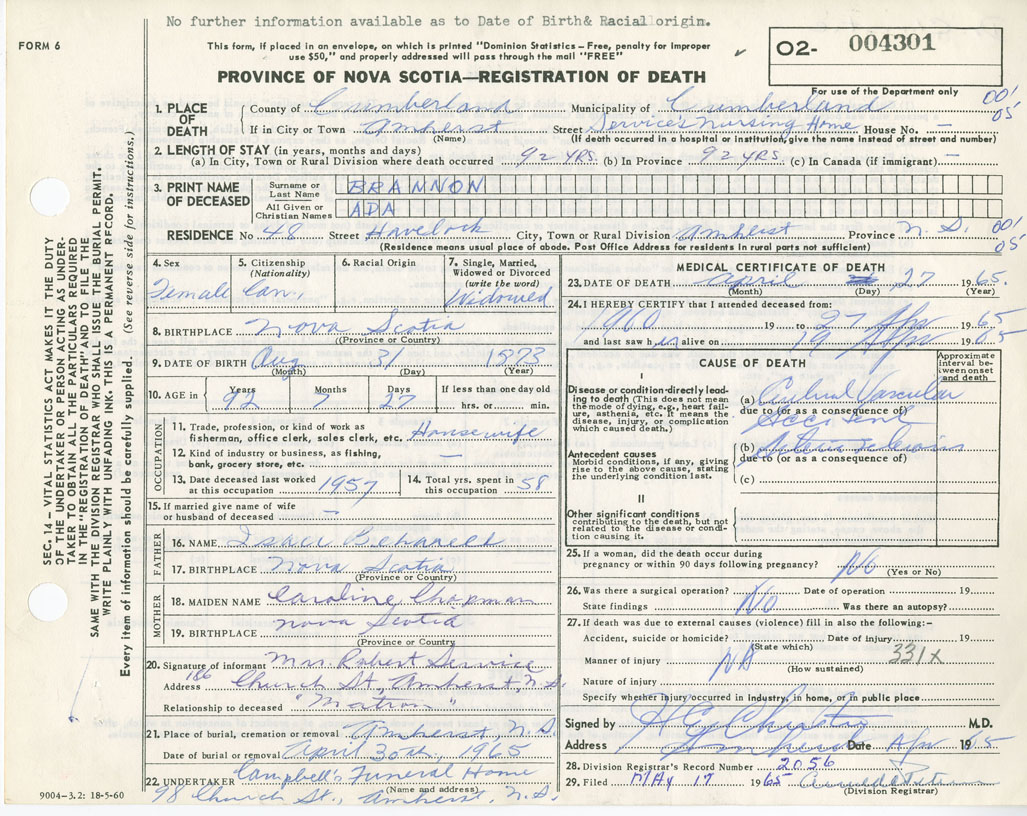 No further information available as to Date of Birth& Racial origin.
FORM 6
This form, if placed in an envelope, on which is printed "Dominion Statistics – Free, penalty for improper
use $50," and properly addressed will pass through the mail "FREE"
PROVINCE OF NOVA SCOTIA—REGISTRATION OF DEATH
02- 004301
For use of the Department only
001
05
1. PLACE OF DEATH County of Cumberland Municipality of Cumberland
If in City or Town Amherst Street Service's Nursing Home House No. –
(Name) (If death occurred in a hospital or institution, give the name instead of street and number)
2. LENGTH OF STAY (in years, months and days)
(a) In City, Town or Rural Division where death occurred 92 YRS. (b) In Province 92 YRS. (c) In Canada (if immigrant) –
3. PRINT NAME OF DECEASED Surname or Last Name BRANNON
All Given or Christian Names ADA
RESIDENCE No 48 Street Havelock City, Town or Rural Division Amherst Province N.S. 001
05
(Residence means usual place of abode. Post Office Address for residents in rural parts not sufficient)
4. Sex Female
5. Citizenship (Nationality) Can.
6. Racial Origin
7. Single, Married, Widowed or Divorced (write the word) Widowed
8. BIRTHPLACE Nova Scotia
(Province or Country)
9. DATE OF BIRTH Aug 31 1873
(Month) (Day) (Year)
10. AGE in Years Months Days If less than one day old
92 7 27 hrs. or min.
OCCUPATION
11. Trade, profession, or kind of work as
fisherman, office clerk, sales clerk, etc. Housewife
12. Kind of industry or business, as fishing,
bank, grocery store, etc. –
13. Date deceased last worked at this occupation 1957
14. Total yrs. spent in this occupation 58
15. If married give name of wife
or husband of deceased –
FATHER
16. NAME Isaac
17. BIRTHPLACE Nova Scotia
(Province or Country)
MOTHER
18. MAIDEN NAME Caroline Chapman
19. BIRTHPLACE Nova Scotia
(Province or Country
20. Signature of informant Mrs. Robert Service
Address 186 Church St., Amherst, N.S.
Relationship to deceased "Matron"
21. Place of burial, cremation or removal Amherst, N.S.
Date of burial or removal April 30th, 1965
22. UNDERTAKER Campbell's Funeral Home
(Name and address)
98 Church St., Amherst, N.S.
9004–3.2: 18-5-60
MEDICAL CERTIFICATE OF DEATH
23. DATE OF DEATH April 27 1965
(Month) (Day) (Year)
24. I HEREBY CERTIFY that I attended deceased from:
1960 19 to 27 Apr 1965
and last saw her alive on 19 Apr 1965
CAUSE OF DEATH
Approximate interval between onset and death
I
Disease or condition directly leading to death (This does not mean
the mode of dying, e.g., heart failure, asthenia, etc. It means the
disease, injury, or complication
which caused death.)
(a) Cerebral Vascular
due to (or as a consequence of)
Accident
Antecedent causes
Morbid conditions, if any, giving
rise to the above cause, stating
the underlying condition last.
(b)
due to (or as a consequence of)
(c)
II
Other significant conditions
contributing to the death, but not
related to the disease or condition causing it.
25. If a woman, did the death occur during
pregnancy or within 90 days following pregnancy? No
(Yes or No)
26. Was there a surgical operation? Date of operation 19
State findings No Was there an autopsy?
27. If death was due to external causes (violence) fill in also the following:–
Accident, suicide or homicide? Date of injury 19
(State which)
Manner of injury NA 331X
(How sustained)
Nature of injury
Specify whether injury occurred in industry, in home, or in public place
Signed by M.D.
Address Amherst Date Apr 1965
28. Division Registrar's Record Number 2056
29. Filed MAY 17 1965
(Division Registrar)
SEC. 14 – VITAL STATISTICS ACT MAKES IT THE DUTY
OF THE UNDERTAKER OR PERSON ACTING AS UNDER-
TAKER TO OBTAIN ALL THE PARTICULARS REQUIRED
IN THE "REGISTRATION OF DEATH" AND TO FILE THE
SAME WITH THE DIVISION REGISTRAR WHO SHALL ISSUE THE BURIAL PERMIT.
WRITE PLAINLY WITH UNFADING INK. THIS IS A PERMANENT RECORD.
Every item of information should be carefully supplied. (See reverse side for instructions.)